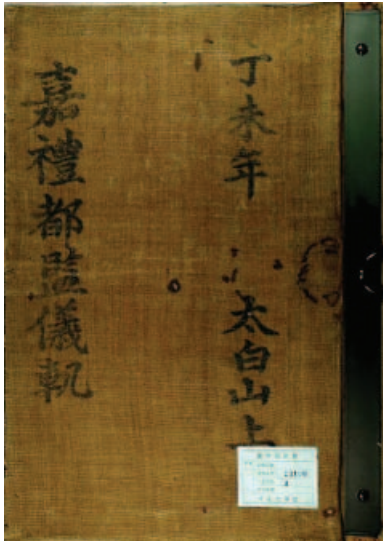 丁未年 太白山上
嘉禮都監儀軌